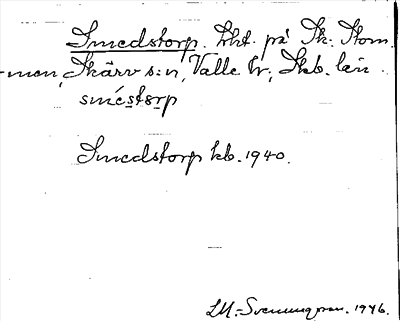 Smedstorp. trkt. på Sk. Stom.
-men, Skärv s:n, Valle hr, Skb. län.
smés̲tɘr̲p
Smedstorp kb. 1940.
LM.-Svenungsson. 1946.